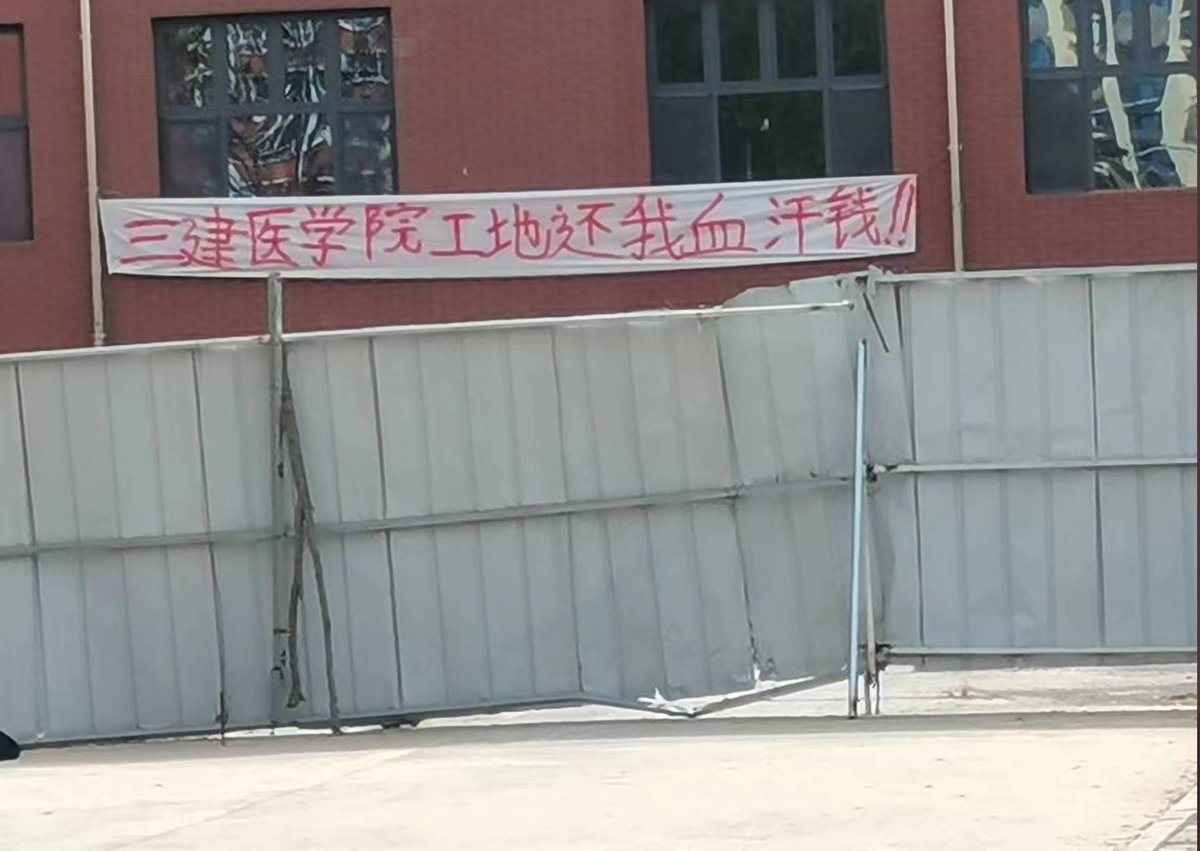 三建医学院工地还我血汗钱!!